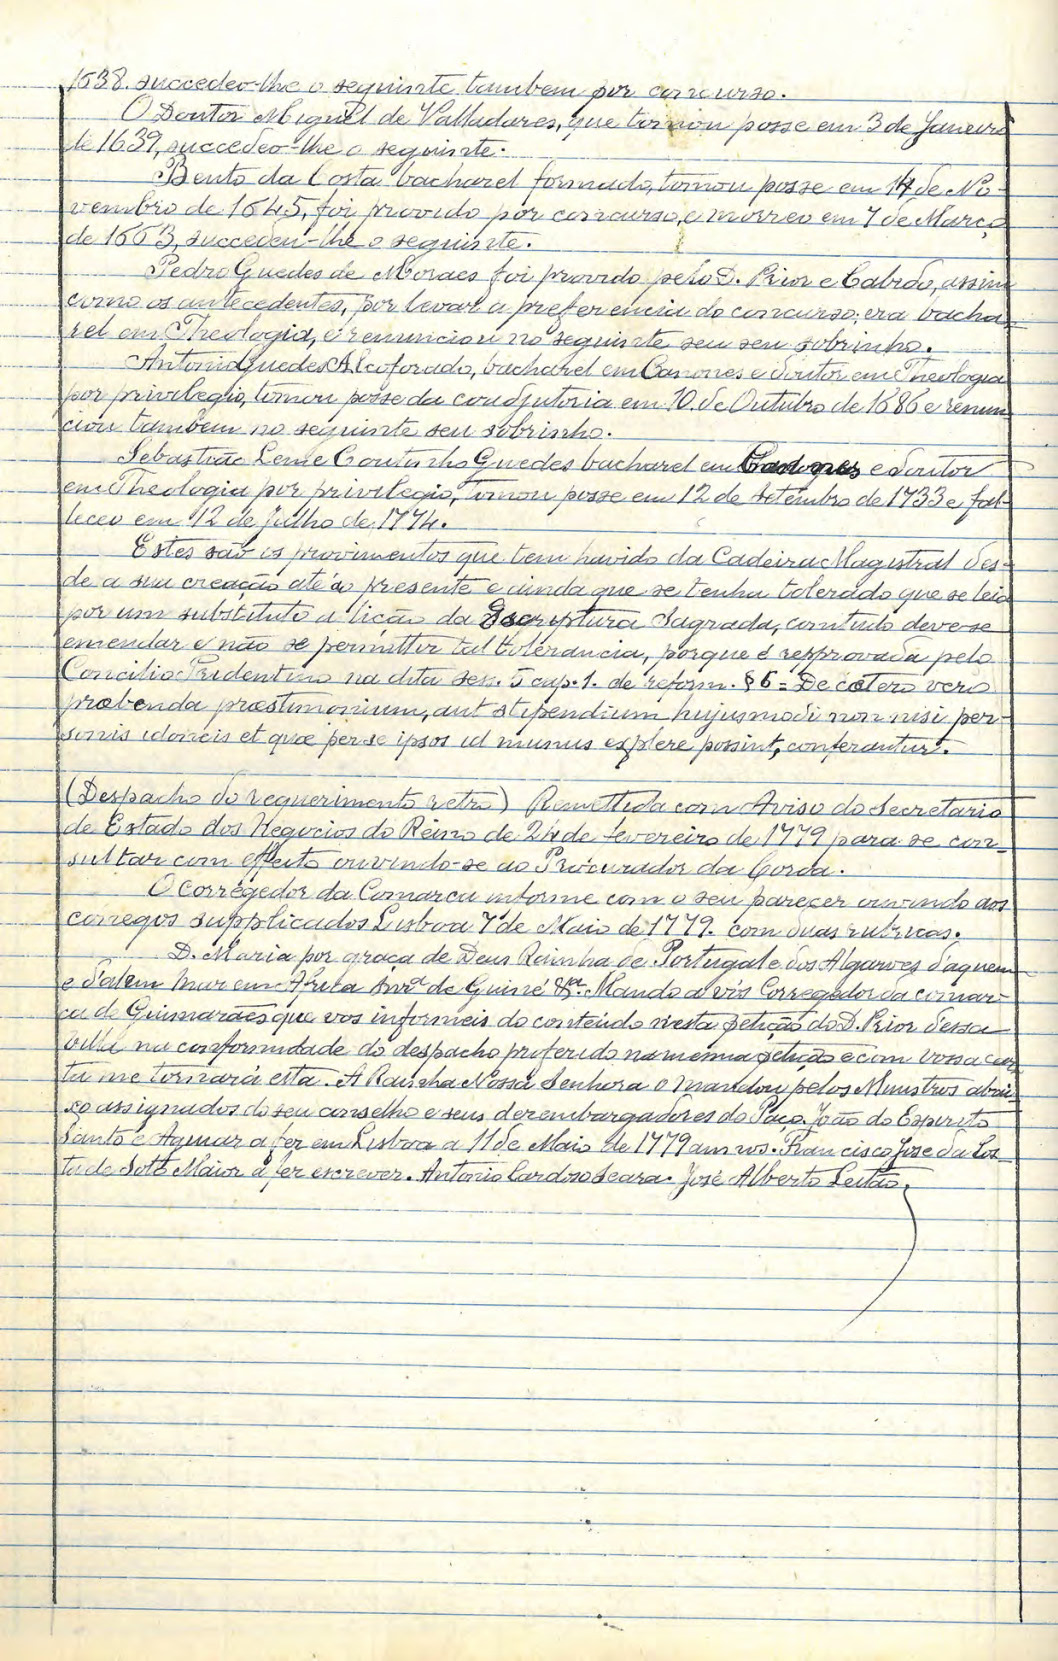 1638. succedeo-lhe o seguinte tambem por concurso.
O Doutor Miguel de Valladares, que tomou posse em 3 de Janeiro
de 1639, succedeo-lhe o seguinte.
Bento da Costa bacharel formado, tomou posse em 14 de No-
vembro de 1645, foi provido por concurso, e morreo em 7 de Março
de 1663, succedeu-lhe o seguinte.
Pedro Guedes de Moraes foi provido pelo D. Prior e Cabido, assim
como os antecedentes, por levar a preferencia do concurso; era bacha-
rel em Theologia, e renunciou no seguinte seu seu sobrinho.
Antonio Guedes Alcoforado, bacharel em Canones e doutor em Theologia
por privilegio, tomou posse da coadjutoria em 10 de Outubro de 1686 e renun
ciou tambem no seguinte seu sobrinho.
Sebastião Leme Coutinho Guedes bacharel em Canones e doutor
em Theologia por privilegio, tomou posse em 12 de setembro de 1733 e fal-
leceo em 12 de Julho de 1774.
Estes são os provimentos que tem havido da Cadeira Magistral des-
de a sua creação até ao presente e ainda que se tenha tolerado que se leia
por um substituto a lição da Escriptura Sagrada, comtudo deve-se
emendar e não se permittir tal tolerancia, porque é reprovada pelo
Concilio Tridentino na dita ses. 5 cap. 1. de reform. § 6 = De cætero vero
præbenda præstimonium, aut stipendium hujusmodi non nisi per-
sonis idoneis et quæ per se ipsos id munus explere possint, conferantur.
(Despacho do requerimento retro) Remettida com Aviso do Secretario
de Estado dos Negocios do Reino de 24 de fevereiro de 1779 para se con-
sultar com effeito ouvindo-se ao Procurador da Coroa.
O Corregedor da Comarca informe com o seu parecer ouvindo aos
conegos supplicados Lisboa 7 de Maio de 1779. com duas rubricas.
D. Maria por graça de Deus Rainha de Portugal e dos Algarves d'aquem
e d'alem mar em Africa Snrª de Guiné &ª. Mando a vós Corregedor da comar-
ca de Guimarães que vos informeis do conteúdo nesta petição do D. Prior dessa
Villa na conformidade do despacho proferido na mesma petição e com vossa car
ta me tornará esta. A Rainha Nossa Senhora o mandou pelos Ministros abai
xo assignados do seu conselho e seus desembargadores do Paço. João do Espirito
Santo e Aguiar a fez em Lisboa a 11 de Maio de 1779 annos. Francisco Jose da Cos-
ta de Soto Maior a fez escrever. Antonio Cardoso Seara. José Alberto Leitão.